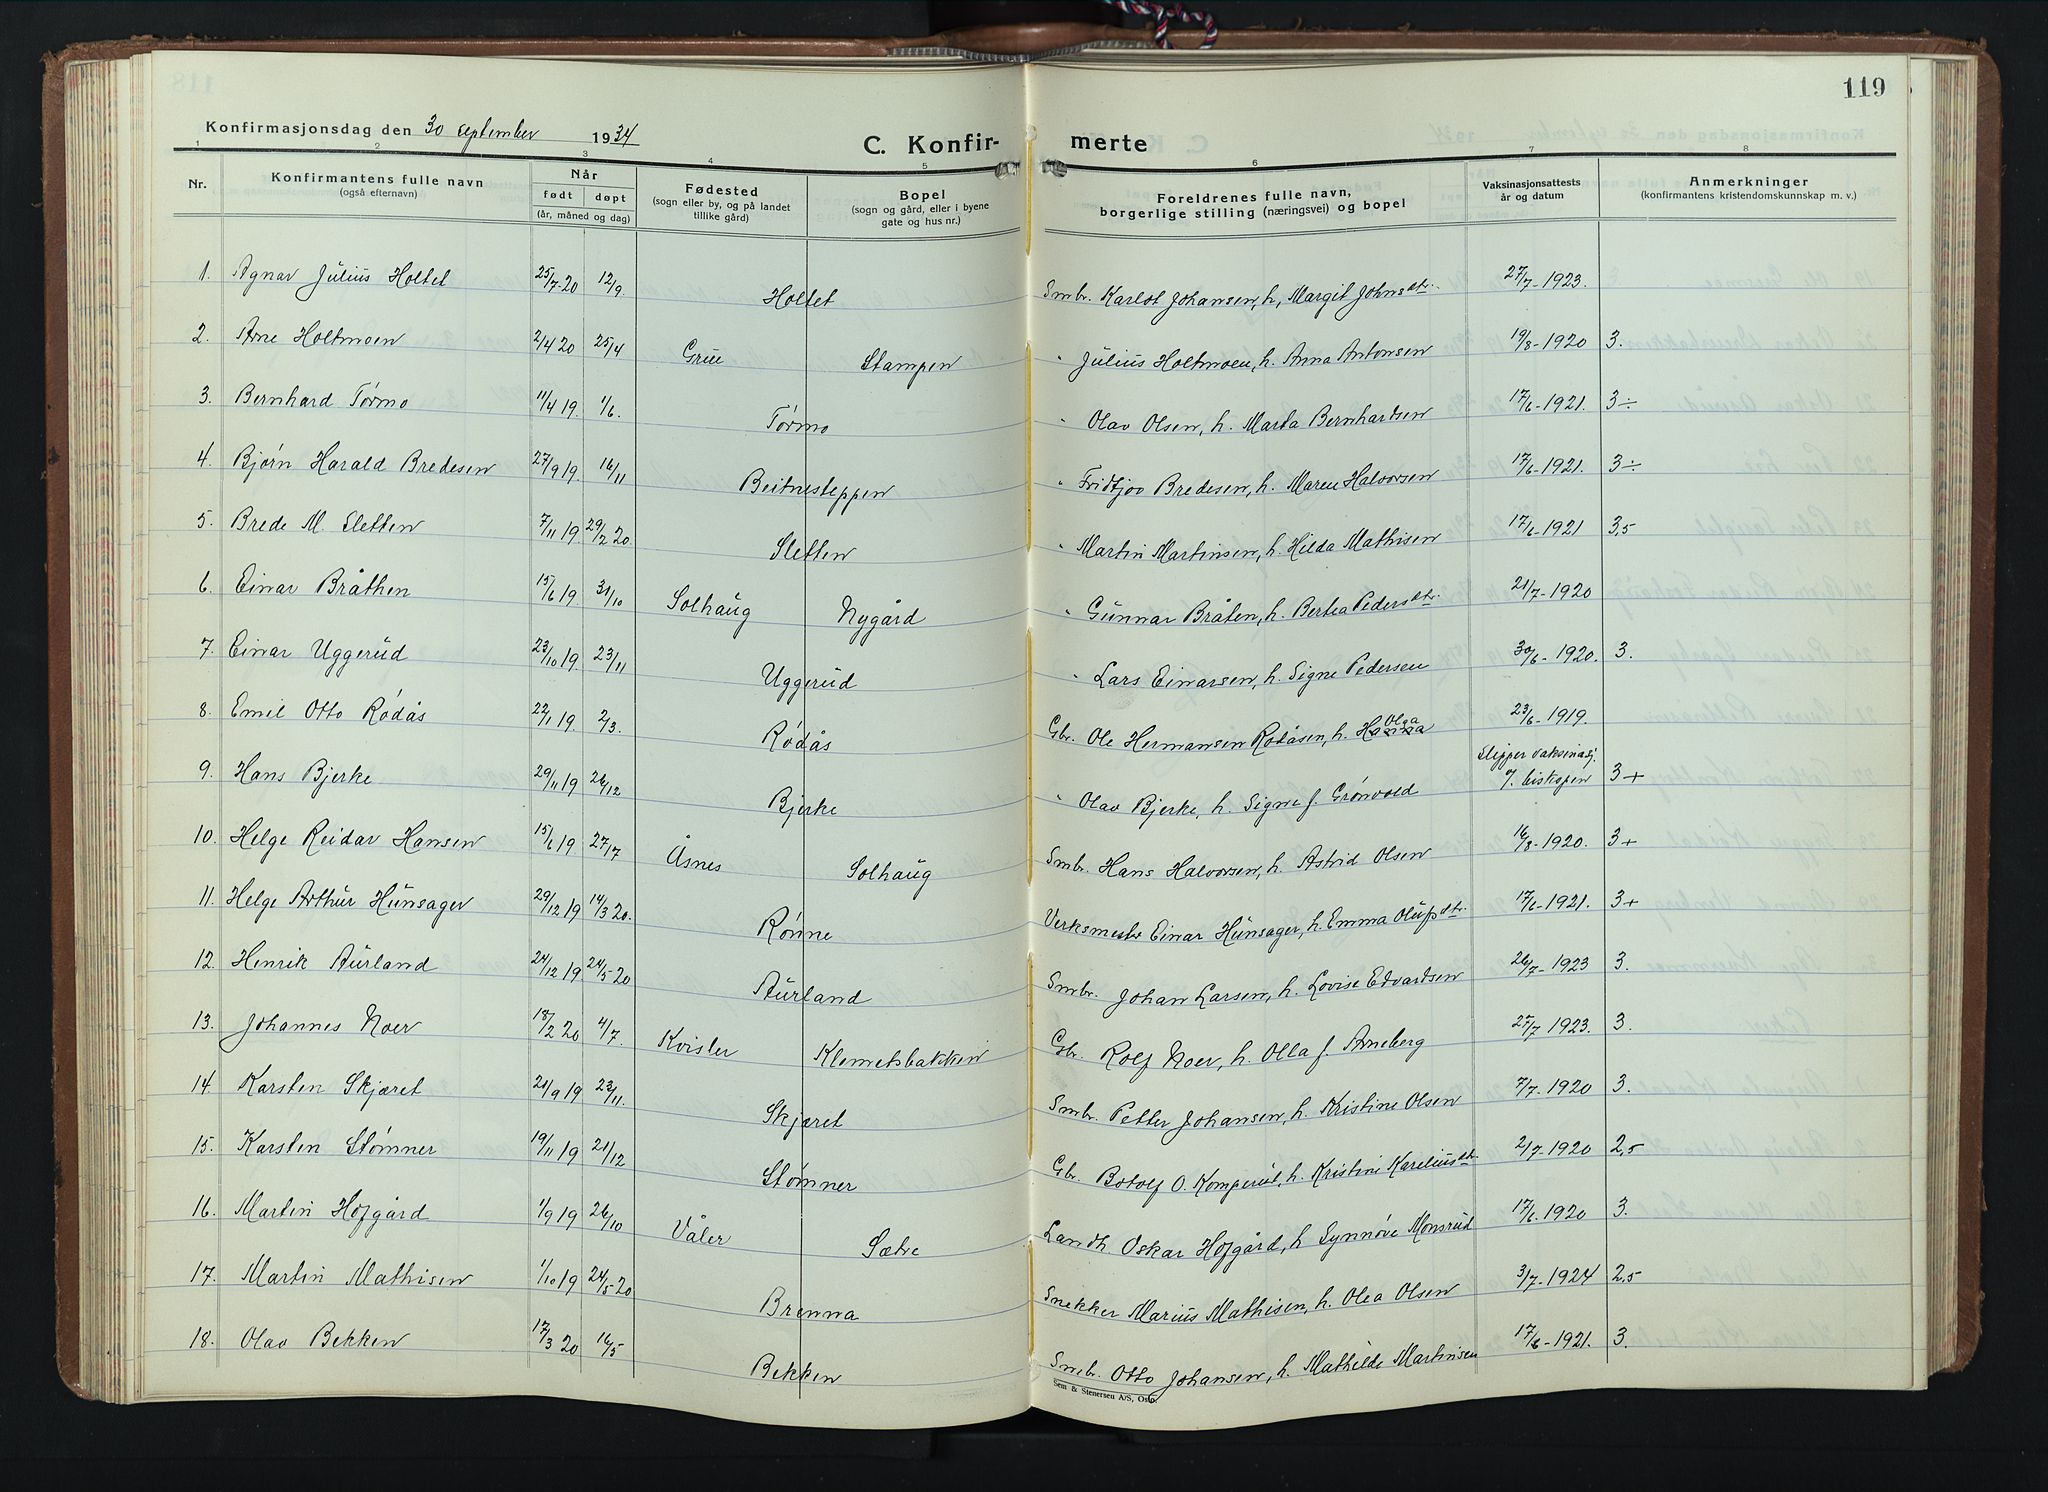 119
Konfirmasjonsdag den 30 september 1934
C. Konfir- merte
1 2 3 4 5 6 7 8
Nr. Konfirmantens fulle navn (også efternavn) Når født døpt (år, måned og dag) Fødested (sogn eller by, og på landet tillike gård) Bopel (sogn og gård, eller i byene gate og hus nr.) Foreldrenes fulle navn, borgerlige stilling (næringsvei) og bopel Vaksinasjonsattests år og datum Anmerkninger (konfirmantens kristendomskunnskap m. v.)
1. Agnar Julius Holtet 25/7-20 12/9. Holtet Smbr. Karlot Johansen, h, Margit Johnsdtr. 27/7-1923.
2. Arne Holtmoen 2/4 20 25/4 Grue Stampen " Julius Holtmoen, h. Anna Antonsen 19/8-1920 3.
3. Bernhard Tørmo 11/4 19. 1/6. Tørmo " Olav Olsen, h. Marta Bernhardsen 17/6-1921. 3÷
4. Bjørn Harald Bredesen 27/9 19. 16/11 Beitnesteppen " Fridtjov Bredesen, h. Maren Halvorsen 17/6-1921. 3÷
5. Brede M. Sletten 7/11 19. 29/2 20. Sletten " Martin Martinsen, h. Hilda Mathisen 17/6-1921 3,5
6. Einar Bråthen 15/6 19. 31/10 Solhaug Nygård " Gunnar Bråten, h. Bertea Pedersdtr. 21/7-1920
7. Einar Uggerud 23/10 19. 23/11 Uggerud " Lars Einarsen, h. Signe Pedersen 30/6-1920. 3.
8. Emil Otto Rødås 22/1 19. 2/3. Rødås Gbr. Ole Hermansen Rødåsen, h. Olga Hanna 23/6-1919.
9. Hans Bjerke 29/11 19 26/12 Bjerke " Olav Bjerke, h. Signe f. Grønvold Slipper vaksinasj. v/ biskopen 3+
10. Helge Reidar Hansen 15/6 19 27/17 Åsnes Solhaug Smbr. Hans Halvorsen, h. Astrid Olsen 16/8-1920. 3+
11. Helge Arthur Hunsager 29/12 19 14/3 20. Rønne Verksmester Einar Hunsager, h. Emma Olufsdtr. 17/6-1921. 3+
12. Henrik Aurland 24/12 19 24/5 20 Aurland Smbr. Johan Larsen, h. Lovise Edvardsen 26/7-1923 3.
13. Johannes Noer 18/2 20 4/7. Kvisler Klemetsbakken Gbr. Rolf Noer, h. Olla f. Arneberg 27/7 1923. 3.
14. Karsten Skjæret 21/9 19 23/11. Skjæret Smbr. Petter Johansen, h. Kristine Olsen 7/7-1920 3.
15. Karsten Stømner 19/11 19 21/12 Stømner Gbr. Botolf O. Komperud, h. Kristine Kareliusdtr. 2/7-1920 2,5
16. Martin Hofgård 1/9 19 26/10 Våler Sætre Landh. Oskar Hofgård, h Synnøve Monsrud 17/6-1920 3.
17. Martin Mathisen 1/10 19 24/5 20 Brenna Snekker Marius Mathisen, h. Olea Olsen 3/7-1924 2,5
18. Olav Bekken 17/3 20 16/5 Bekken Smbr. Otto Johansen, h. Mathilde Martinsen 17/6-1921. 3.
Sem & Stenersen A/S, Oslo.